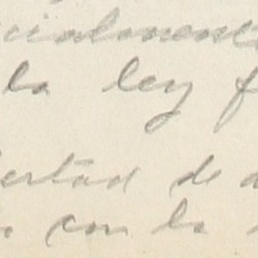 cialmente
la ley f
ertad de d
con la